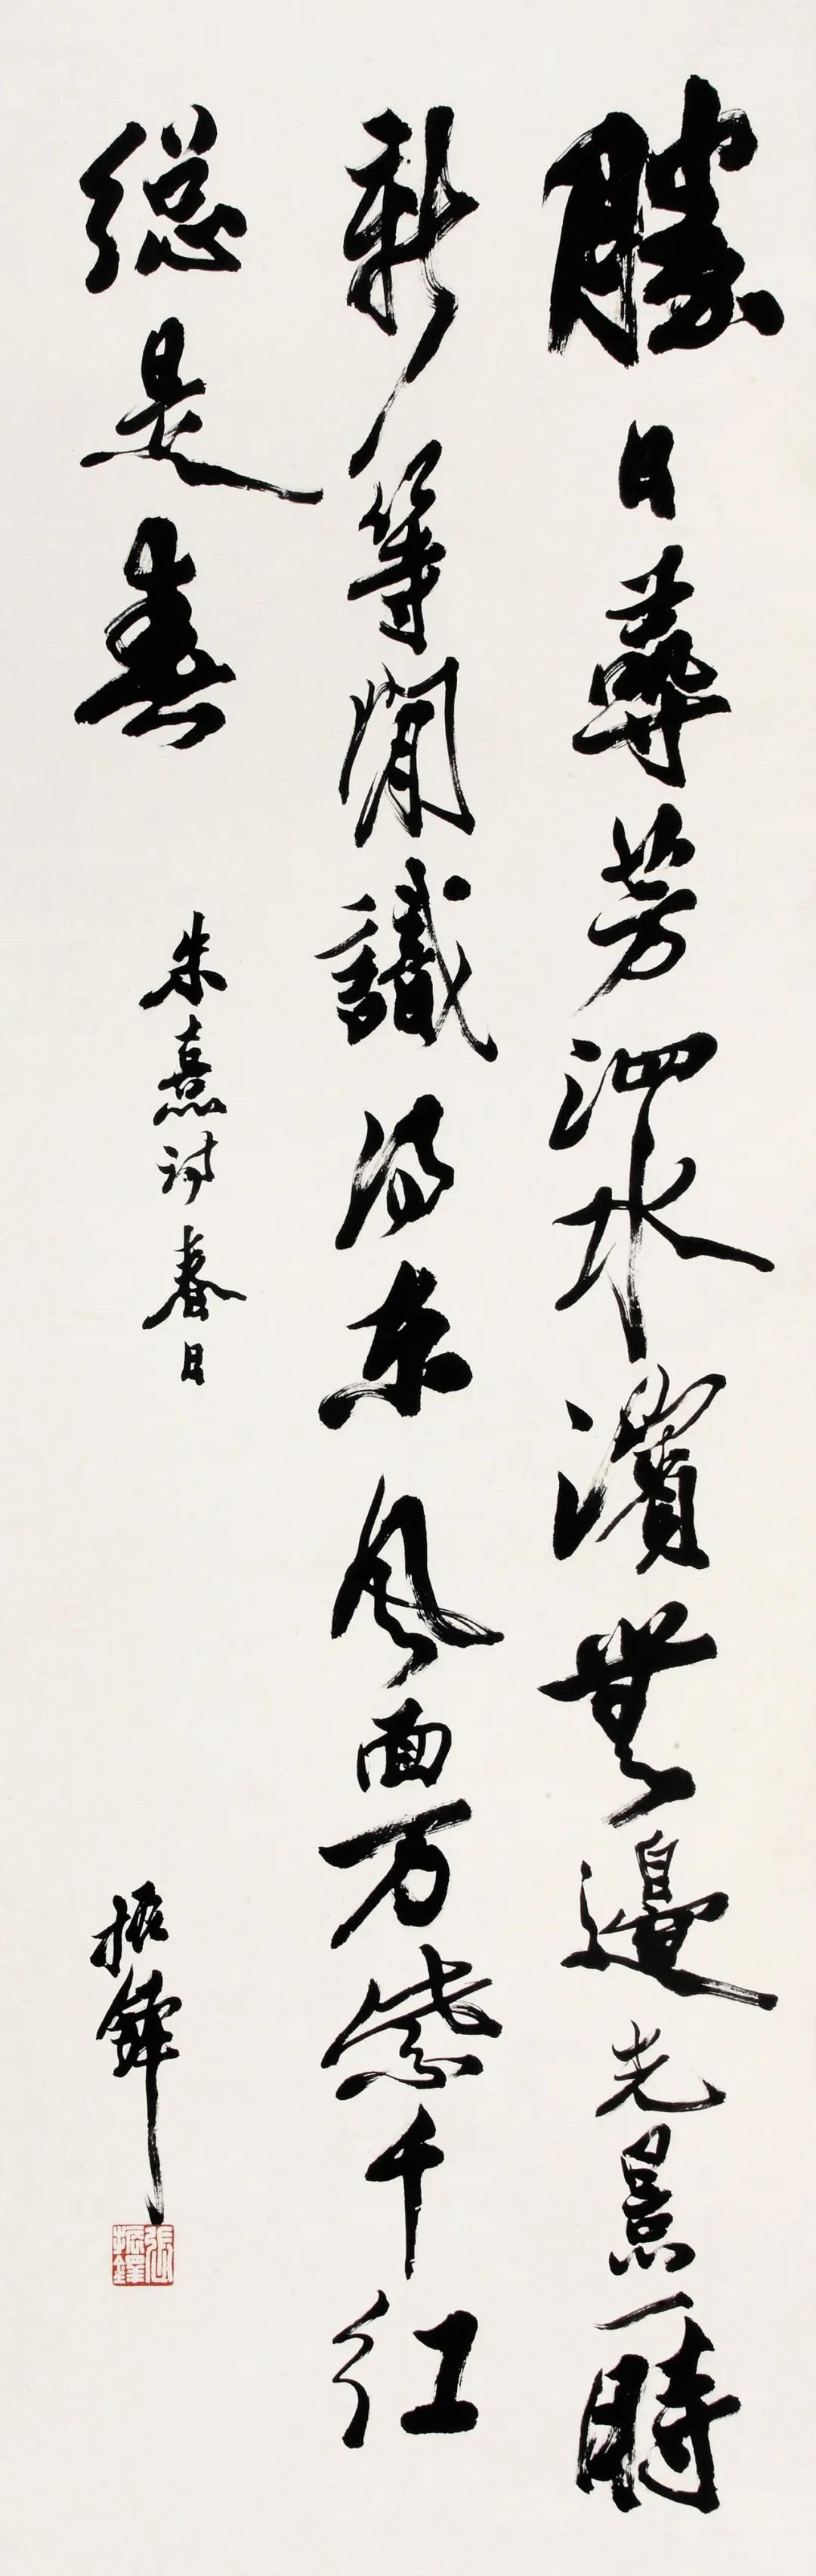 勝日尋芳泗水濱無邊光景一時
新等閒識得東風面万紫千红
総是春
朱熹詩春日
振鐸
張振鐸